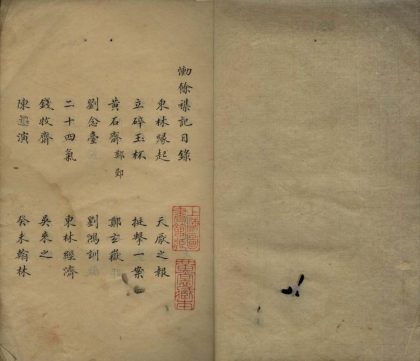 慟餘襍記目錄
東林緣起 天啟之報
立碎玉杯 挺擊一案
黃石齋 鄭鄤 鄭玄嶽
劉念臺 劉鴻訓
二十四氣 東林經濟
錢牧齋 吳來之
陳啟演 癸未翰林